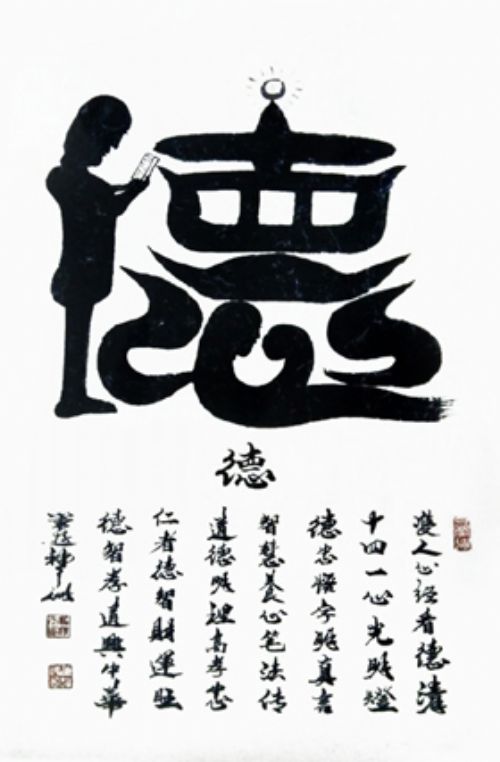 德
德
雙人心經看德清
十四一心光明燈
德忠悟字真言
智慧養心笔法传
道德明理高孝忠
仁者德智財運旺
德智孝道興中華